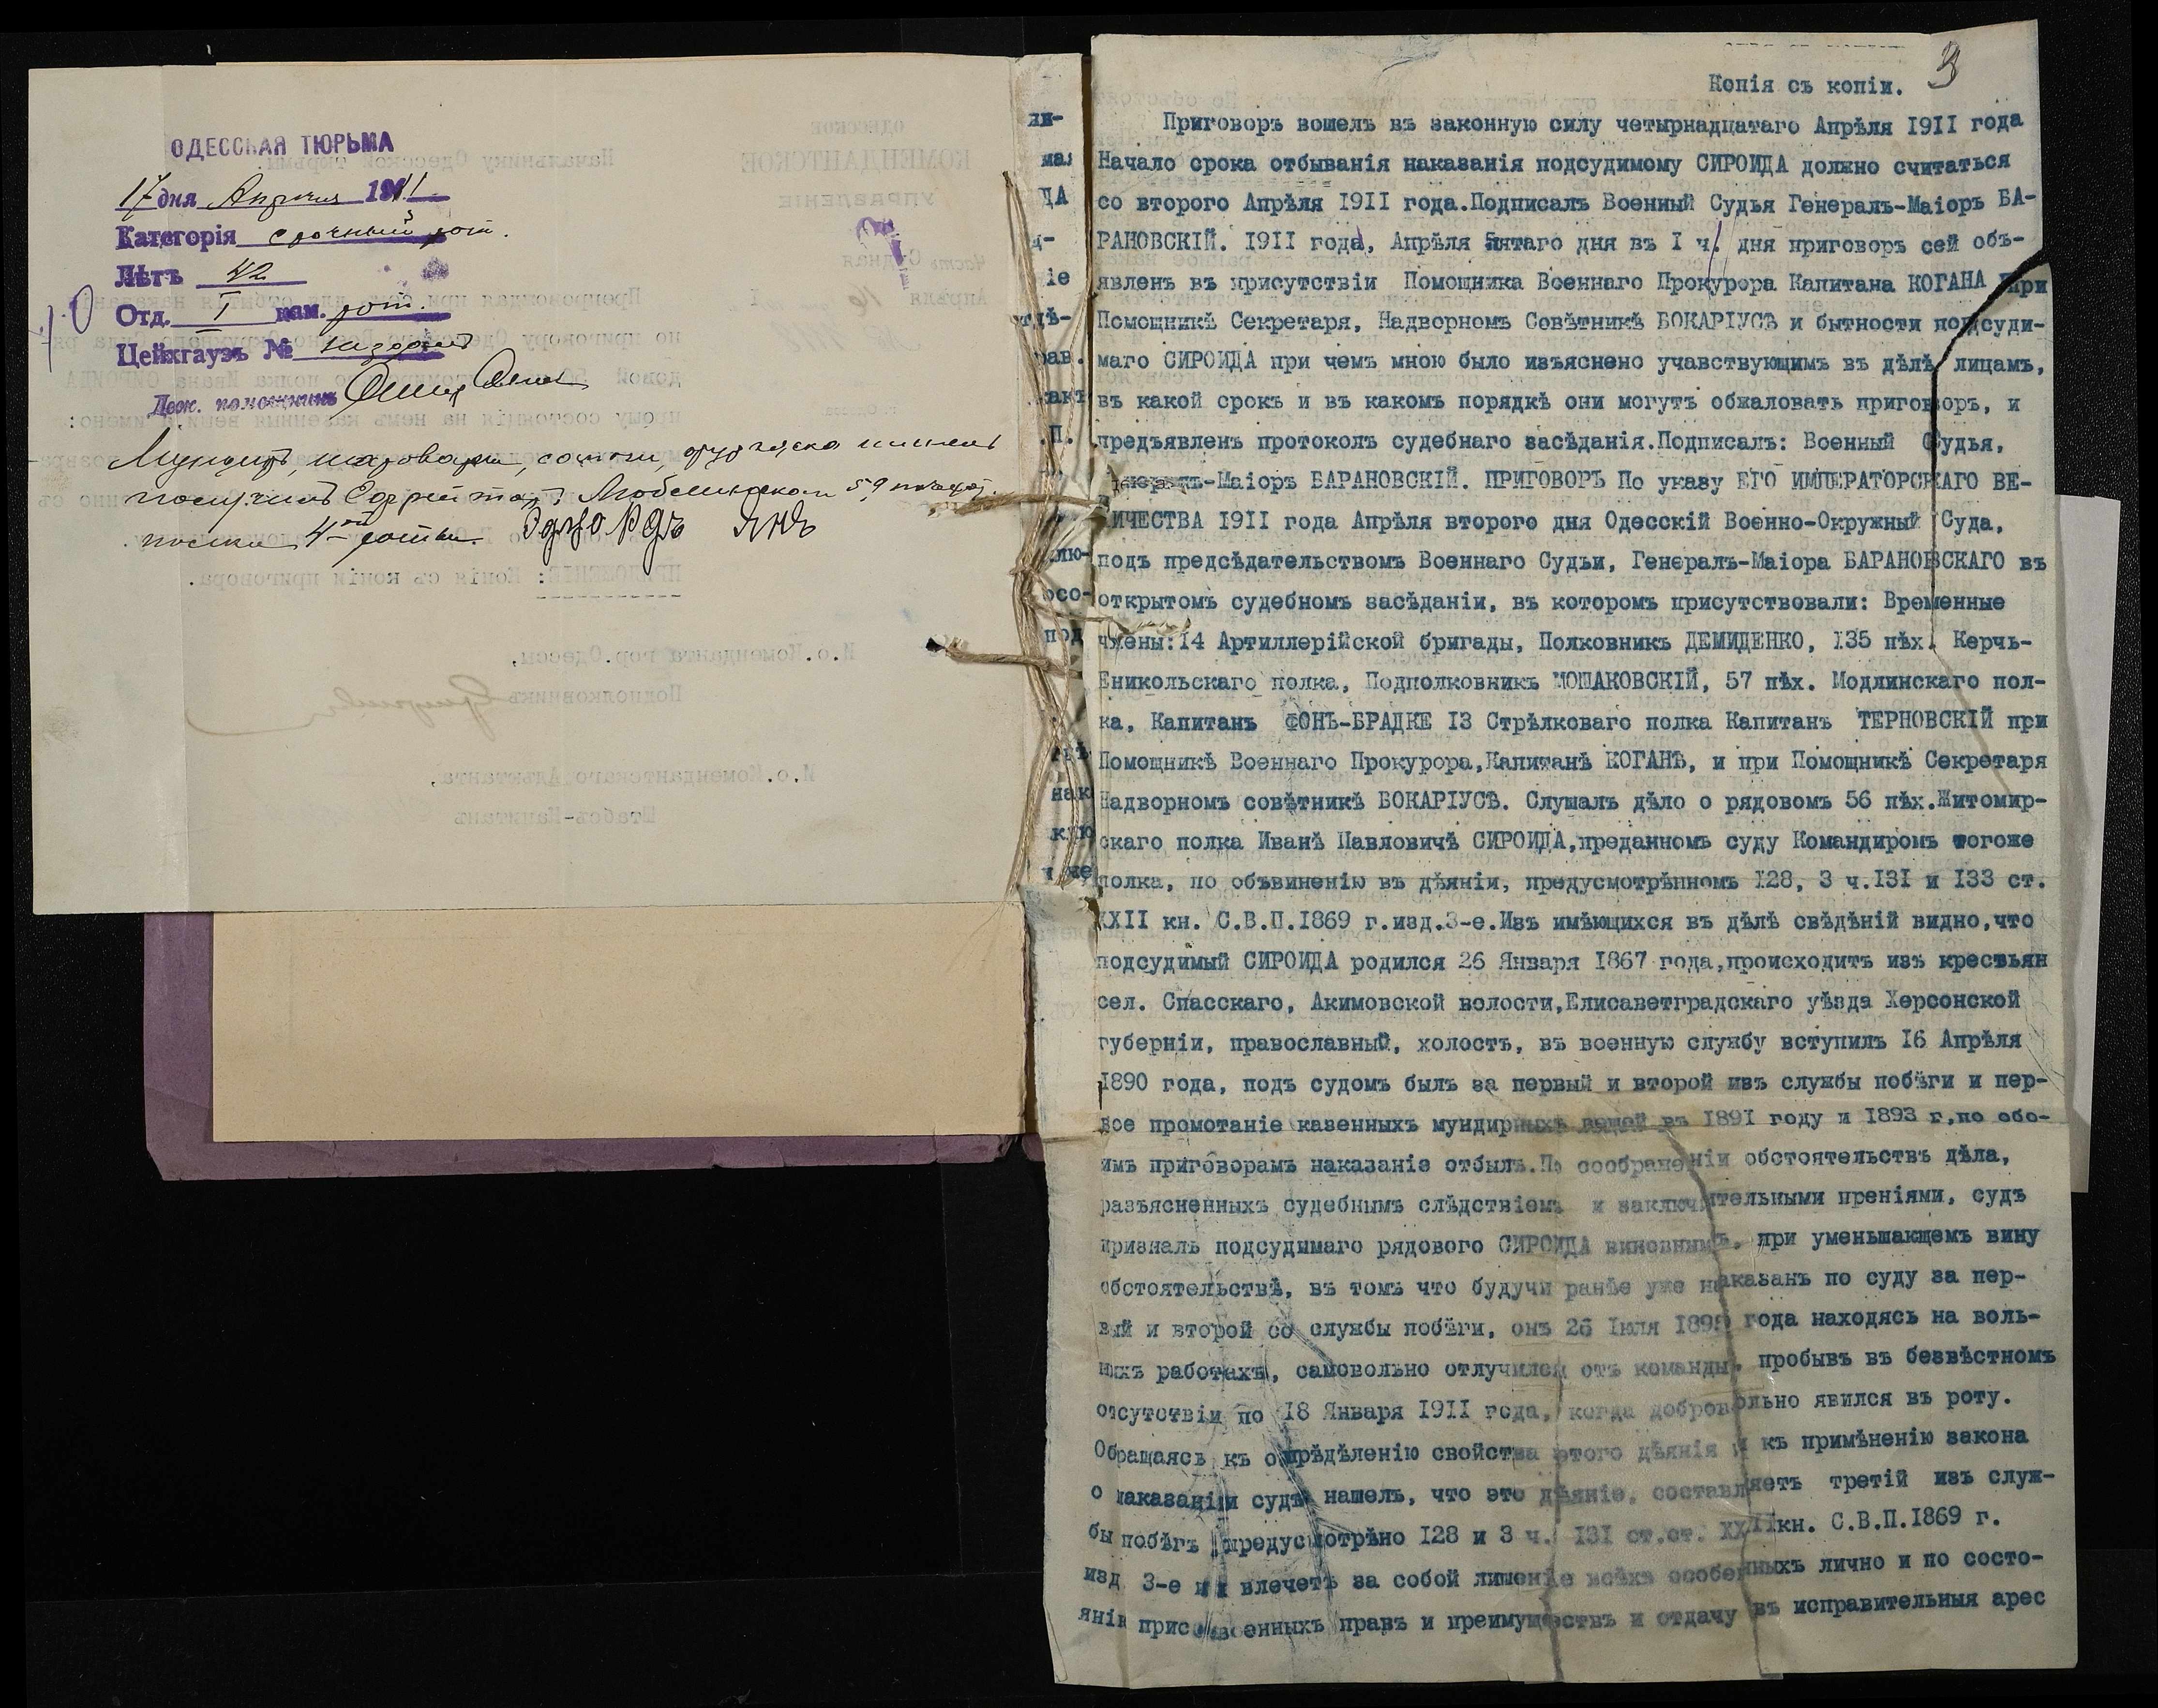 ОДЕССКАЯ ТЮРЬМА
17 дня Апреля 1911
Категорія срочный рот.
Лѣтъ 42
Отд. I кам. рот
Цейхгаузъ №
Деж. помощникъ
Мундиръ, шаровары, сапоги, фуражка шинель
получилъ Ефрейторъ Люблинскаго 59 пѣхот.
полка 4-ой роты. Эдуардъ Янъ
3
Копія съ копіи.
Приговоръ вошелъ въ законную силу четырнадцатаго Апрѣля 1911 года
Начало срока отбыванія наказанія подсудимому СИРОИДА должно считаться
со второго Апрѣля 1911 года.Подписалъ Военный Судья Генералъ-Маіоръ БА-
РАНОВСКІЙ. 1911 года, Апрѣля пятаго дня въ 1 ч. дня приговоръ сей объ-
явленъ въ присутствіи Помощника Военнаго Прокурора Капитана КОГАНА при
Помощникѣ Секретаря, Надворномъ Совѣтникѣ БОКАРІУСѢ и бытности подсуди-
маго СИРОИДА при чемъ мною было изъяснено учавствующимъ въ дѣлѣ лицамъ,
въ какой срокъ и въ какомъ порядкѣ они могутъ обжаловать приговоръ, и
предъявленъ протоколъ судебнаго засѣданія.Подписалъ: Военный Судья,
Генералъ-Маіоръ БАРАНОВСКІЙ. ПРИГОВОРЪ По указу ЕГО ИМПЕРАТОРСКАГО ВЕ-
ЛИЧЕСТВА 1911 года Апрѣля второго дня Одесскій Военно-Окружный Суда,
подъ предсѣдательствомъ Военнаго Судьи, Генералъ-Маіора БАРАНОВСКАГО въ
открытомъ судебномъ засѣданіи, въ которомъ присутствовали: Временные
члены:14 Артиллерійской бригады, Полковникъ ДЕМИДЕНКО, 135 пѣх. Керчь-
Еникольскаго полка, Подполковникъ МОШАКОВСКІЙ, 57 пѣх. Модлинскаго пол-
ка, Капитанъ ФОНЪ-БРАДКЕ 13 Стрѣлковаго полка Капитанъ ТЕРНОВСКІЙ при
Помощникѣ Военнаго Прокурора,Капитанѣ КОГАНѢ, и при Помощникѣ Секретаря
Надворномъ совѣтникѣ БОКАРІУСѢ. Слушалъ дѣло о рядовомъ 56 пѣх.Житомир-
скаго полка Иванѣ Павловичѣ СИРОИДА,преданномъ суду Командиромъ тогоже
полка, по объвиненію въ дѣяніи, предусмотрѣнномъ 128, 3 ч.131 и 133 ст.
XXII кн. С.В.П.1869 г.изд.3-е.Изъ имѣющихся въ дѣлѣ свѣдѣній видно,что
подсудимый СИРОИДА родился 26 Января 1867 года,происходитъ изъ крестьян
сел. Спасскаго, Акимовской волости,Елисаветградскаго уѣзда Херсонской
губерніи, православный, холостъ, въ военную службу вступилъ 16 Апрѣля
1890 года, подъ судомъ былъ за первый и второй изъ службы побѣги и пер-
вое промотаніе казенныхъ мундирныхъ вещей въ 1891 году и 1893 г.по обо-
имъ приговорамъ наказаніе отбылъ.По соображеніи обстоятельствъ дѣла,
разъясненныхъ судебнымъ слѣдствіемъ и заключительными преніями, судъ
призналъ подсудимаго рядового СИРОИДА виновнымъ, при уменьшающемъ вину
обстоятельствѣ, въ томъ что будучи ранѣе уже наказанъ по суду за пер-
вый и второй со службы побѣги, онъ 26 Іюля 1895 года находясь на воль-
ныхъ работахъ, самовольно отлучился отъ команды, пробывъ въ безвѣстномъ
отсутствіи по 18 Января 1911 года, когда добровольно явился въ роту.
Обращаясь къ опрѣдѣленію свойства этого дѣянія и къ примѣненію закона
о наказаніи судъ нашелъ, что это дѣяніе, составляетъ третій изъ служ-
бы побѣгъ предусмотрѣно 128 и 3 ч. 131 ст.ст. XXII кн. С.В.П.1869 г.
изд 3-е и влечетъ за собой лишеніе всѣхъ особенныхъ лично и по состо-
янію присвоенныхъ правъ и преимуществъ и отдачу въ исправительныя арес